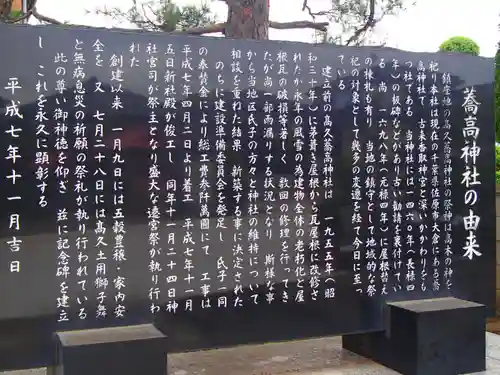 蕎高神社の由来
鎮座地の高久蕎高神社の祭神は高末の神を
祀り本社は現在の千葉県佐原市大倉にある蕎
高神社で 古来香取神宮と深いかかわりをも
つ社である 当神社には一四六〇年(長禄四
年)の板碑などがあり古い勧請を裏付けてい
る 尚 一六九八年(元禄十年)に屋根替え
の棟札も有り 当地の鎮守として地域的な祭
祀の対象として幾多の変遷を経て今日に至っ
ている
建立前の高久蕎高神社は 一九五五年(昭
和三十年)に茅葺き屋根から瓦屋根に改修さ
れたが永年の風雪の為建物全体の老朽化と屋
根瓦の破損等著しく 数回の修理を行ってき
たが尚一部雨漏りする状況となり 斯様な事
から当地区氏子の方々と神社の維持について
相談を重ねた結果 新築する事に決定された
のちに建設準備委員会を発足し 氏子一同
の奉賛金により総工費参阡萬圓にて 工事は
平成七年四月二日より着工 平成七年十一月
五日新社殿が俊工し 同年十一月二十四日神
社宮司が祭主となり盛大な遷宮祭が執り行わ
れた
創建以来 一月九日には五穀豊穣・家内安
全を 又 七月二十八日には高久土用獅子舞
と無病息災の祈願の祭礼が執り行われている
此の尊い御神徳を仰ぎ 茲に記念碑を建立
し これを永久に顕彰する
平成七年十一月吉日